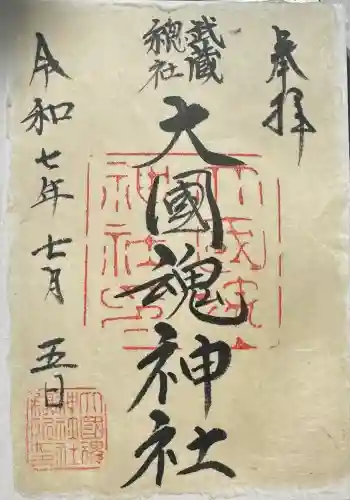 奉拝
武蔵
總社
大國魂神社
令和七年七月五日